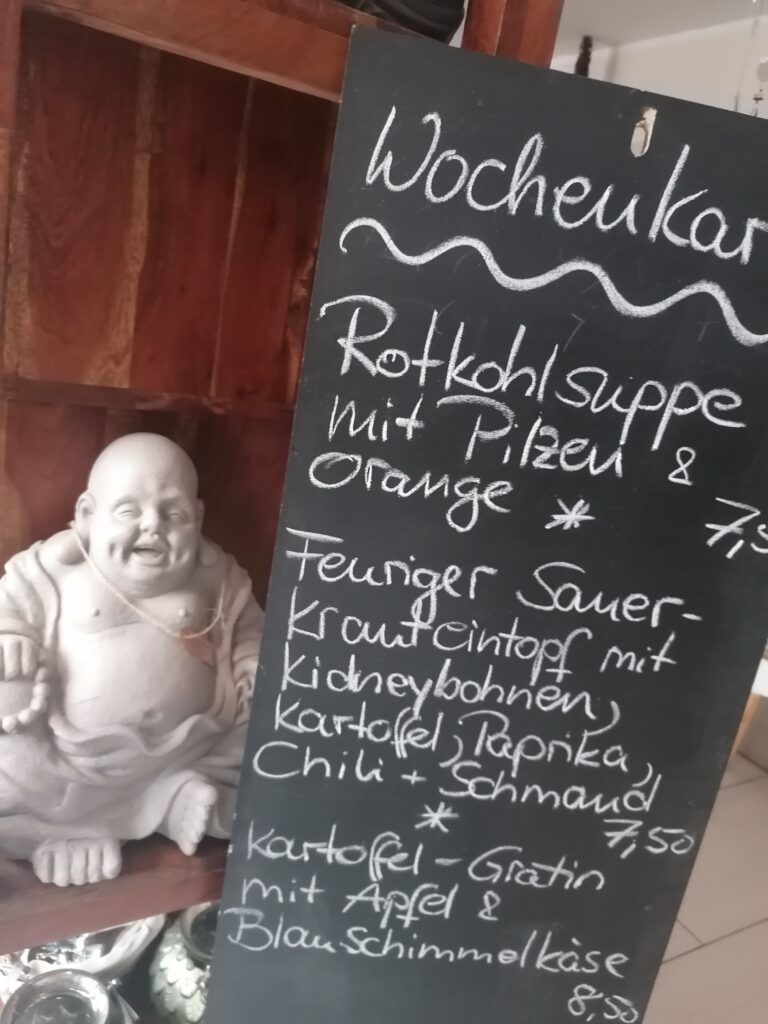 Wochenkar
Rotkohlsuppe
mit Pilzen &
Orange * 7,5
Feuriger Sauer-
krauteintopf mit
Kidneybohnen,
Kartoffel, Paprika,
Chili + Schmand
* 7,50
Kartoffel-Gratin
mit Apfel &
Blauschimmelkäse
8,50